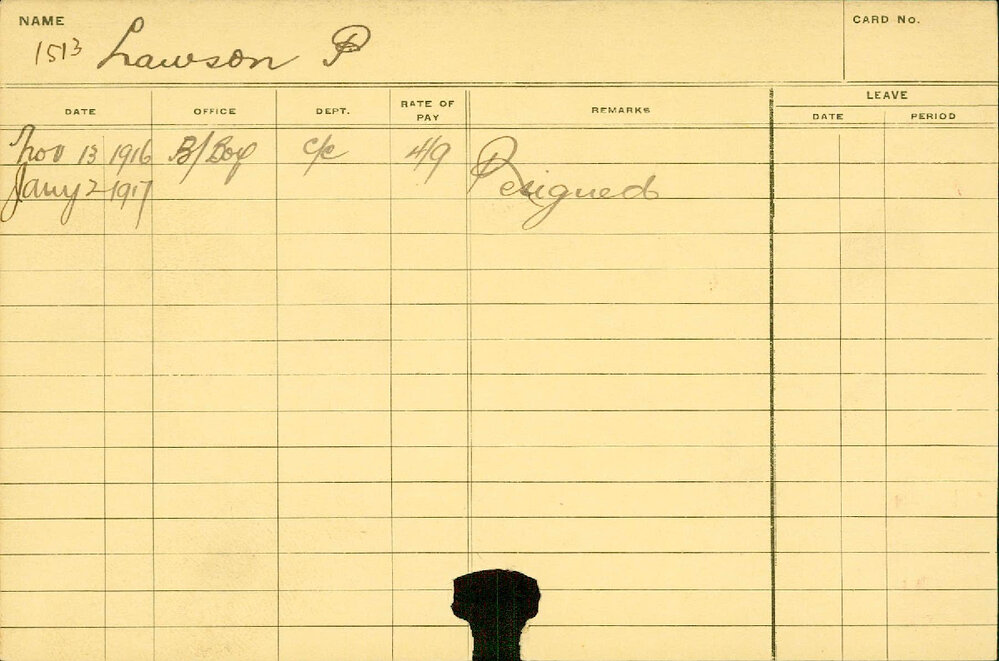 NAME
CARD No.
1513 Lawson P
DATE OFFICE DEPT. RATE OF PAY REMARKS LEAVE
DATE PERIOD
Nov 13 1916 B/Boy c/c 4/9
Jany 2 1917 Resigned